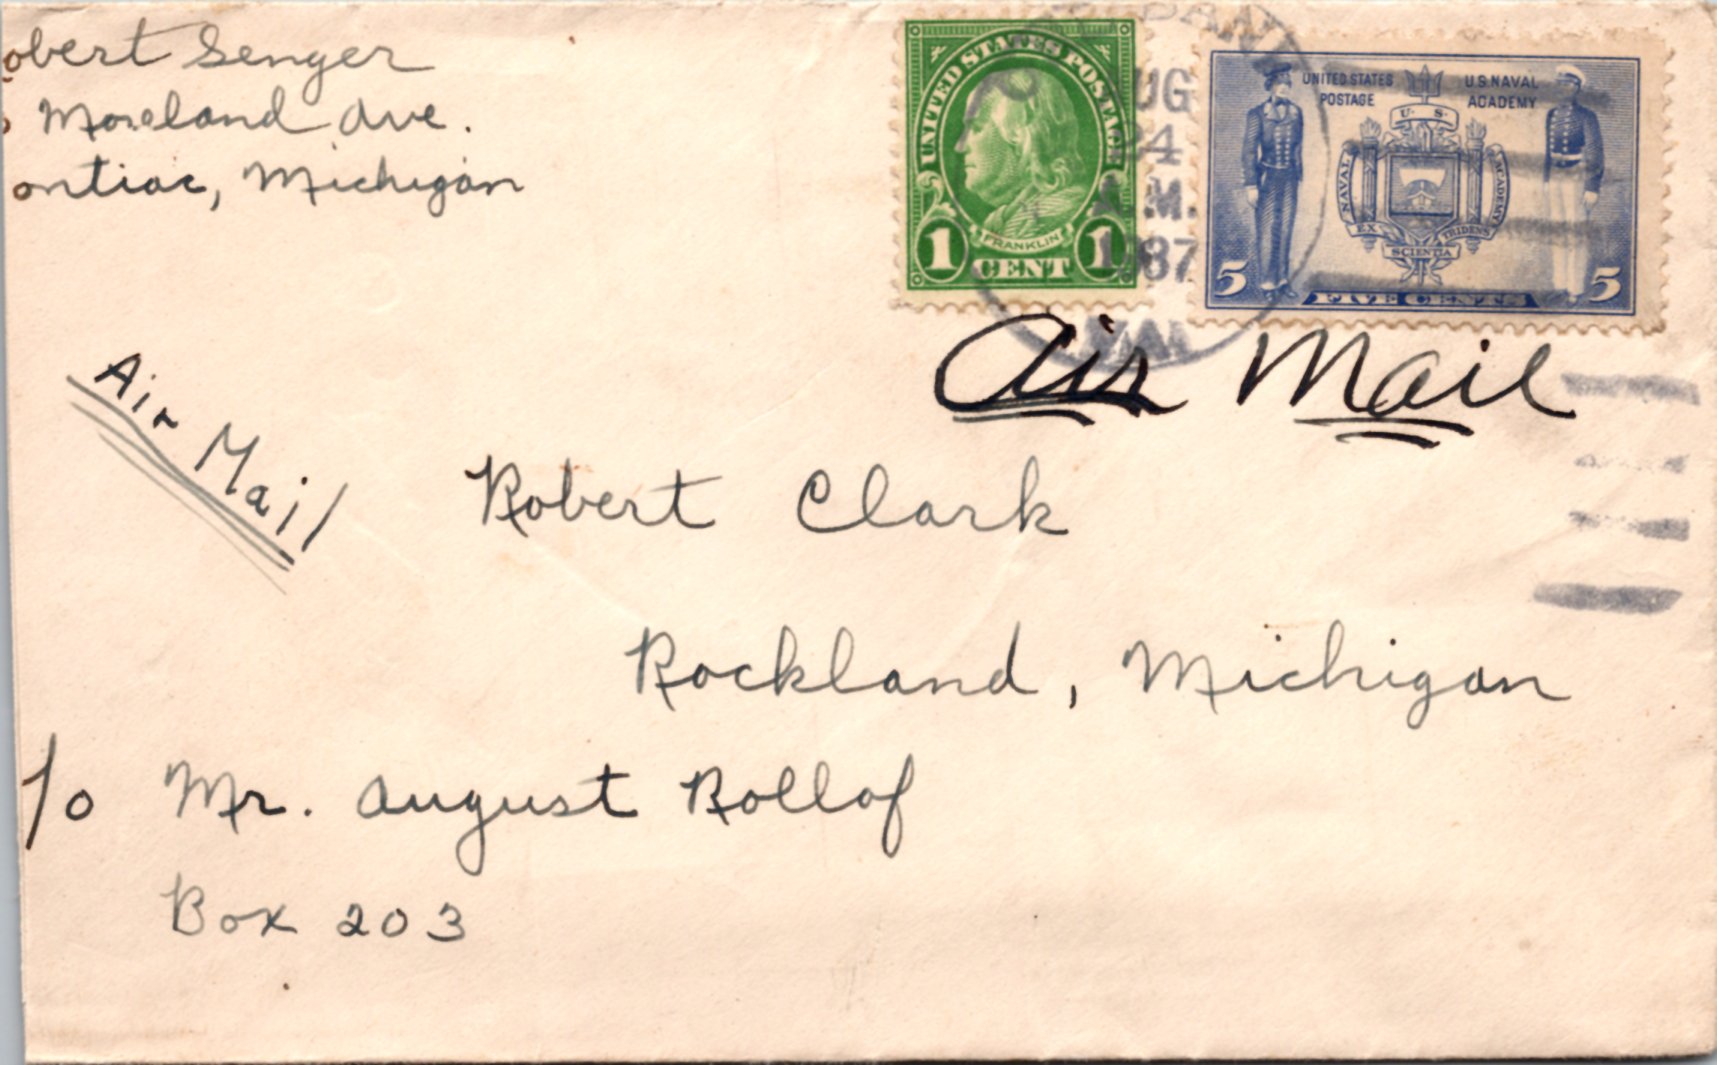 obert Senger
Moreland Ave.
ontiac, Michigan
UNITED STATES POSTAGE
FRANKLIN
1 CENT 1
UG
24
A.M.
1937
UNITED STATES
POSTAGE
U.S. NAVAL
ACADEMY
U S
NAVAL ACADEMY
EX SCIENTIA TRIDENS
5 FIVE CENTS 5
Air Mail
Air Mail
Robert Clark
Rockland, Michigan
/o Mr. August Rollof
Box 203